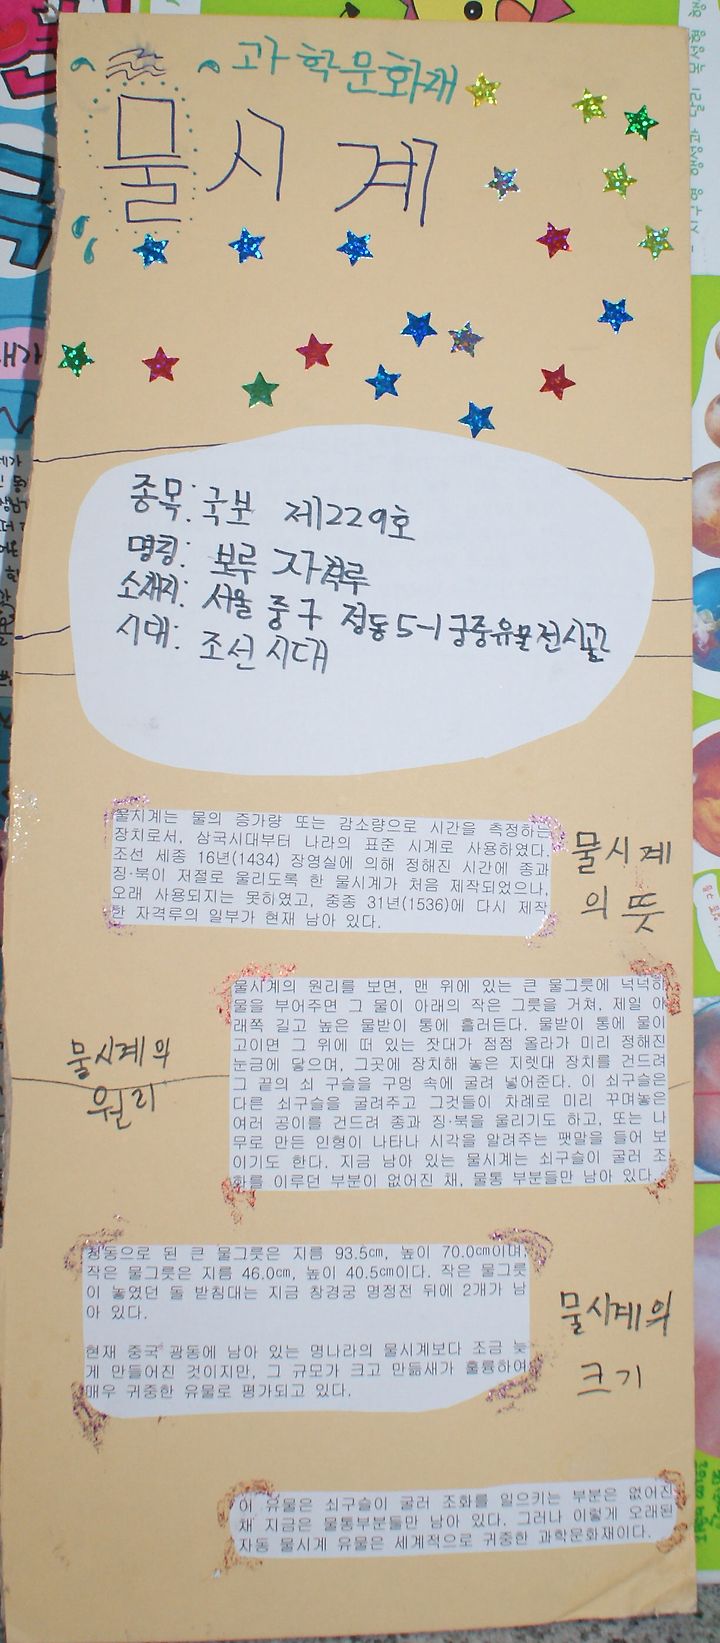 과학문화재
물시계
종목: 국보 제229호
명칭: 보루 자격루
소재지: 서울 중구 정동 5-1 궁중유물전시관
시대: 조선시대
물시계는 물의 증가량 또는 감소량으로 시간을 측정하는
장치로서, 삼국시대부터 나라의 표준 시계로 사용하였다.
조선 세종 16년(1434) 장영실에 의해 정해진 시간에 종과
징·북이 저절로 울리도록 한 물시계가 처음 제작되었으나,
오래 사용되지는 못하였고, 중종 31년(1536)에 다시 제작
한 자격루의 일부가 현재 남아 있다.
물시계
의 뜻
물시계의
원리
물시계의 원리를 보면, 맨 위에 있는 큰 물그릇에 넉넉히
물을 부어주면 그 물이 아래의 작은 그릇을 거쳐, 제일 아
래쪽 길고 높은 물받이 통에 흘러든다. 물받이 통에 물이
고이면 그 위에 떠 있는 잣대가 점점 올라가 미리 정해진
눈금에 닿으며, 그곳에 장치해 놓은 지렛대 장치를 건드려
그 끝의 쇠 구슬을 구멍 속에 굴려 넣어준다. 이 쇠구슬은
다른 쇠구슬을 굴려주고 그것들이 차례로 미리 꾸며놓은
여러 공이를 건드려 종과 징·북을 울리기도 하고, 또는 나
무로 만든 인형이 나타나 시각을 알려주는 팻말을 들어 보
이기도 한다. 지금 남아 있는 물시계는 쇠구슬이 굴러 조
화를 이루던 부분이 없어진 채, 물통 부분들만 남아 있다.
청동으로 된 큰 물그릇은 지름 93.5㎝, 높이 70.0㎝이며,
작은 물그릇은 지름 46.0㎝, 높이 40.5㎝이다. 작은 물그릇
이 놓였던 돌 받침대는 지금 창경궁 명정전 뒤에 2개가 남
아 있다.
현재 중국 광동에 남아 있는 명나라의 물시계보다 조금 늦
게 만들어진 것이지만, 그 규모가 크고 만듦새가 훌륭하여
매우 귀중한 유물로 평가되고 있다.
물시계의
크기
이 유물은 쇠구슬이 굴러 조화를 일으키는 부분은 없어진
채 지금은 물통부분들만 남아 있다. 그러나 이렇게 오래된
자동 물시계 유물은 세계적으로 귀중한 과학문화재이다.